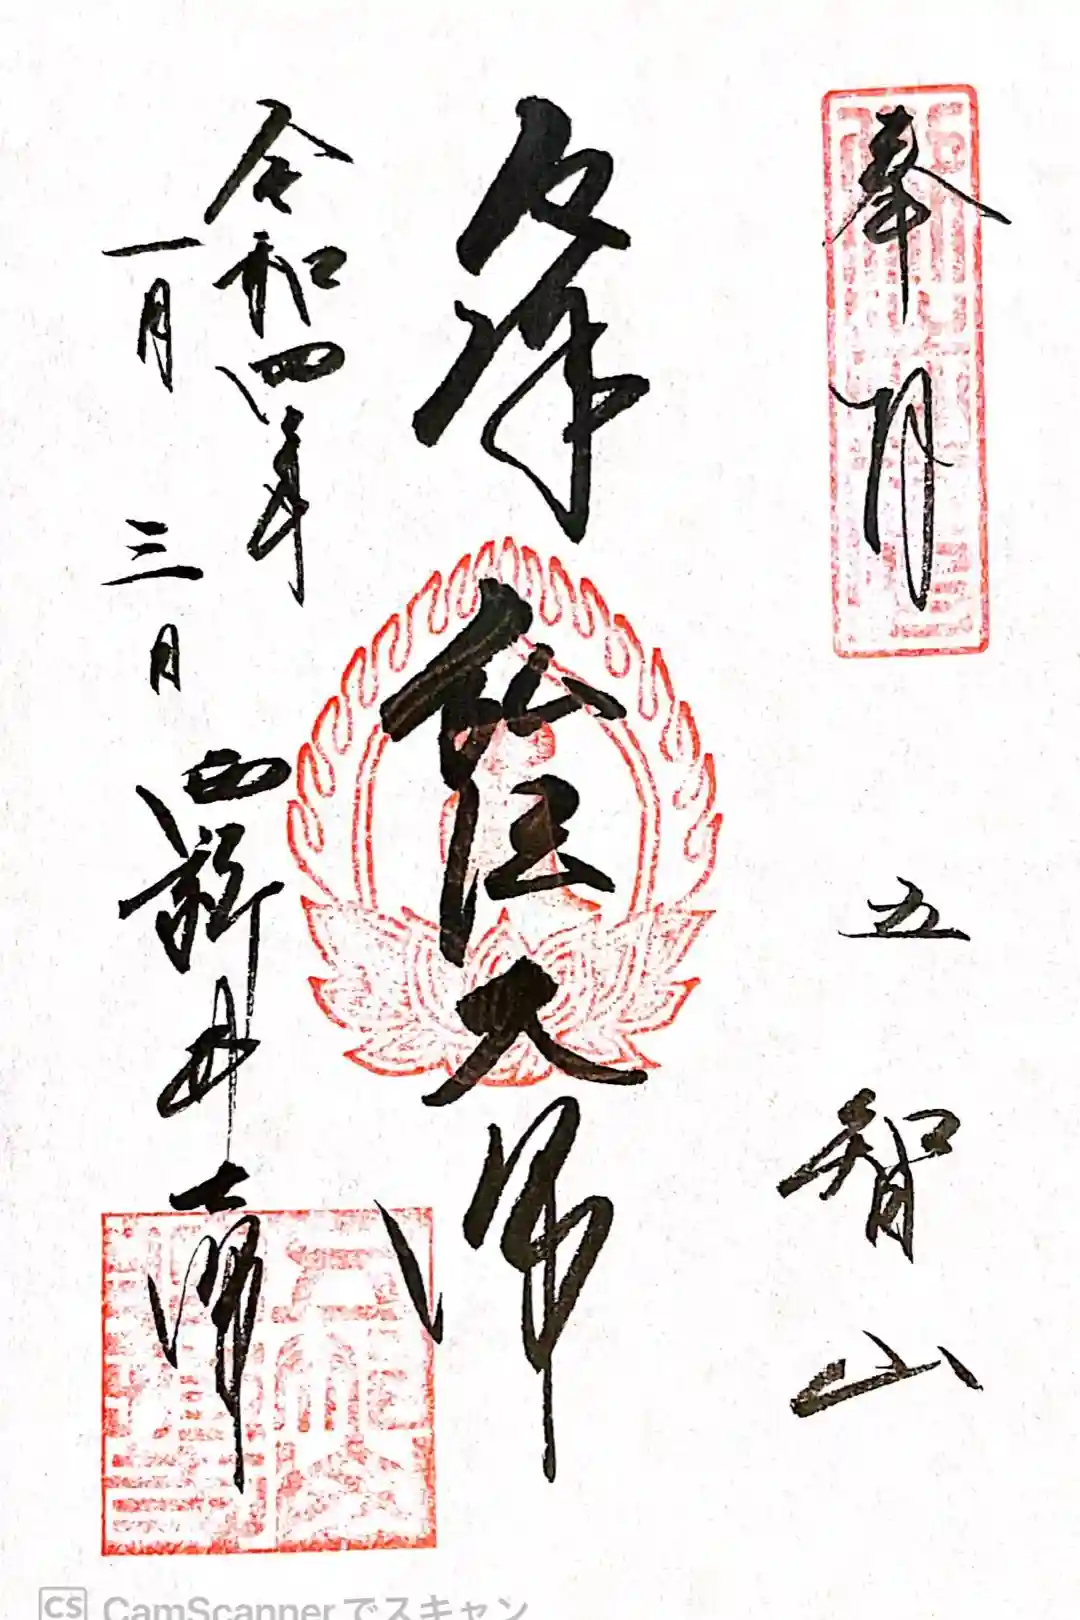 奉拝
五智山
弘法大師
令和四年
一月三日
西新井大師
CS CamScannerでスキャン